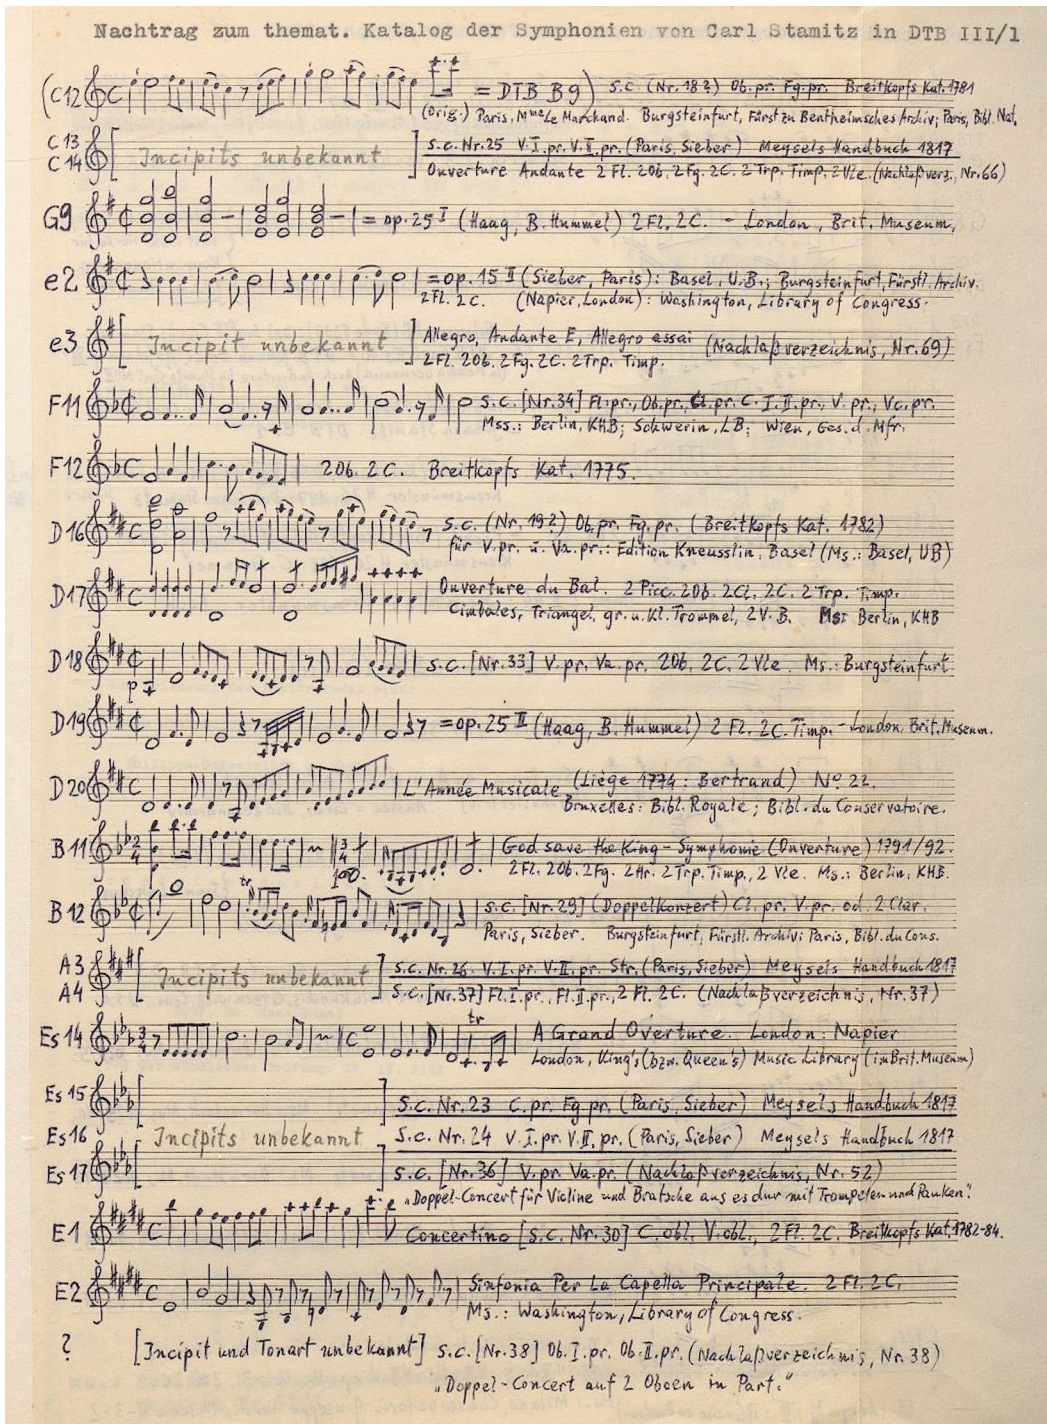 Nachtrag zum themat. Katalog der Symphonien von Carl Stamitz in DTB III/1
(C12 = DTB B9) s.c. (Nr. 18?) Ob. pr. Fg. pr. Breitkopfs Kat. 1781
(Orig.) Paris, Mme Le Marchand. Burgsteinfurt, Fürst zu Bentheimsches Archiv; Paris, Bibl. Nat.
C13 s.c. Nr. 25 V. I. pr. V. II. pr. (Paris, Sieber) Meysels Handbuch 1817
C14 [Incipits unbekannt] Ouverture Andante 2 Fl. 2 Ob. 2 Fg. 2 C. 2 Trp. Timp. 2 Vle. (Nachlaßverz., Nr. 66)
G9 = op. 25 I (Haag, B. Hummel) 2 Fl. 2 C. - London, Brit. Museum,
e2 = op. 15 II (Sieber, Paris): Basel, U.B.; Burgsteinfurt, Fürstl. Archiv.
2 Fl. 2 C. (Napier, London): Washington, Library of Congress.
e3 [Incipit unbekannt] Allegro, Andante E, Allegro assai (Nachlaßverzeichnis, Nr. 69)
2 Fl. 2 Ob. 2 Fg. 2 C. 2 Trp. Timp.
F11 s.c. [Nr. 34] Fl. pr., Ob. pr., Cl. pr. C. I. II. pr., V. pr., Vc. pr.
Mss.: Berlin, KHB; Schwerin, LB; Wien, Ges. d. Mfr.
F12 2 Ob. 2 C. Breitkopfs Kat. 1775.
D16 s.c. (Nr. 19?) Ob. pr. Fg. pr. (Breitkopfs Kat. 1782)
für V. pr. u. Va. pr.: Edition Kneusslin, Basel (Ms.: Basel, UB)
D17 Ouverture du Bal. 2 Picc. 2 Ob. 2 Cl. 2 C. 2 Trp. Timp.
Cimbales, Triangel, gr. u. kl. Trommel, 2 V. B. Ms: Berlin, KHB
D18 p s.c. [Nr. 33] V. pr. Va. pr. 2 Ob. 2 C. 2 Vle. Ms.: Burgsteinfurt
D19 = op. 25 II (Haag, B. Hummel) 2 Fl. 2 C. Timp. - London, Brit. Museum.
D20 L'Année Musicale (Liège 1774: Bertrand) No 22.
Bruxelles: Bibl. Royale; Bibl. du Conservatoire.
B11 God save the King - Symphonie (Ouverture) 1791/92.
2 Fl. 2 Ob. 2 Fg. 2 Hr. 2 Trp. Timp., 2 Vle. Ms.: Berlin, KHB.
B12 tr s.c. [Nr. 29] (Doppelkonzert) Cl. pr. V. pr. od. 2 Clar.
Paris, Sieber. Burgsteinfurt, Fürstl. Archiv; Paris, Bibl. du Cons.
A3 s.c. Nr. 26 V. I. pr. V. II. pr. Str. (Paris, Sieber) Meysels Handbuch 1817
A4 [Incipits unbekannt] s.c. [Nr. 37] Fl. I. pr., Fl. II. pr., 2 Fl. 2 C. (Nachlaßverzeichnis, Nr. 37)
Es 14 tr A Grand Overture. London: Napier
London, King's (bzw. Queen's) Music Library (im Brit. Museum)
Es 15 s.c. Nr. 23 C. pr. Fg pr. (Paris, Sieber) Meysels Handbuch 1817
Es16 [Incipits unbekannt] s.c. Nr. 24 V. I. pr. V. II. pr. (Paris, Sieber) Meysels Handbuch 1817
Es 17 s.c. [Nr. 36] V. pr. Va. pr. (Nachlaßverzeichnis, Nr. 52)
„Doppel-Concert für Violine und Bratsche aus es dur mit Trompeten und Pauken".
E1 Concertino [s.c. Nr. 30] C. obl. V. obl., 2 Fl. 2 C. Breitkopfs Kat. 1782-84.
E2 Sinfonia Per La Capella Principale. 2 Fl. 2 C.
Ms.: Washington, Library of Congress.
? [Incipit und Tonart unbekannt] s.c. [Nr. 38] Ob. I. pr. Ob. II. pr. (Nachlaßverzeichnis, Nr. 38)
„Doppel-Concert auf 2 Oboen in Part."